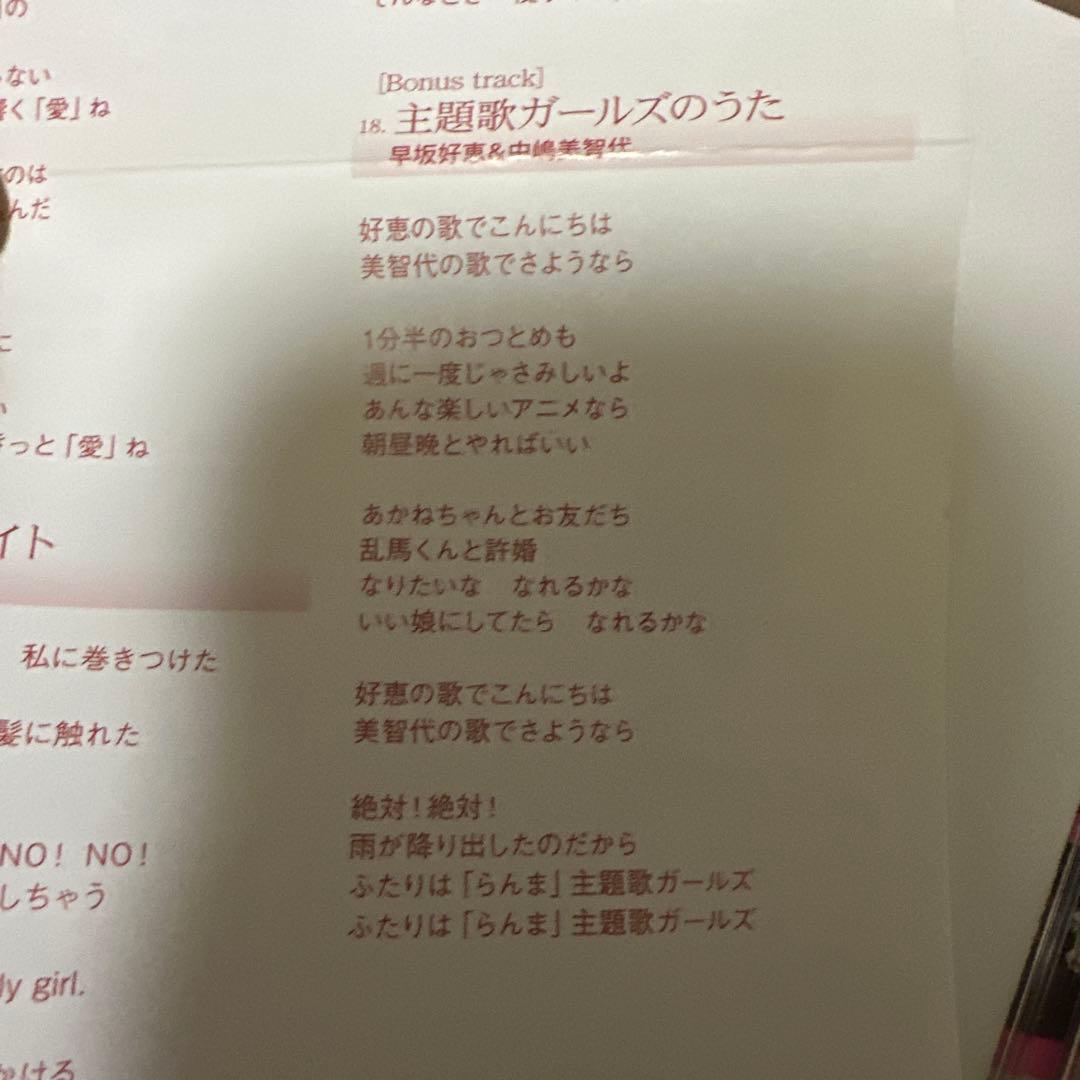 ない
く「愛」ね
のは
んだ
っと「愛」ね
イト
私に巻きつけた
髪に触れた
NO! NO!
しちゃう
ly girl.
かける
[Bonus track]
18. 主題歌ガールズのうた
早坂好恵&中嶋美智代
好恵の歌でこんにちは
美智代の歌でさようなら
1分半のおつとめも
週に一度じゃさみしいよ
あんな楽しいアニメなら
朝昼晩とやればいい
あかねちゃんとお友だち
乱馬くんと許婚
なりたいな　なれるかな
いい娘にしてたら　なれるかな
好恵の歌でこんにちは
美智代の歌でさようなら
絶対!絶対!
雨が降り出したのだから
ふたりは「らんま」主題歌ガールズ
ふたりは「らんま」主題歌ガールズ